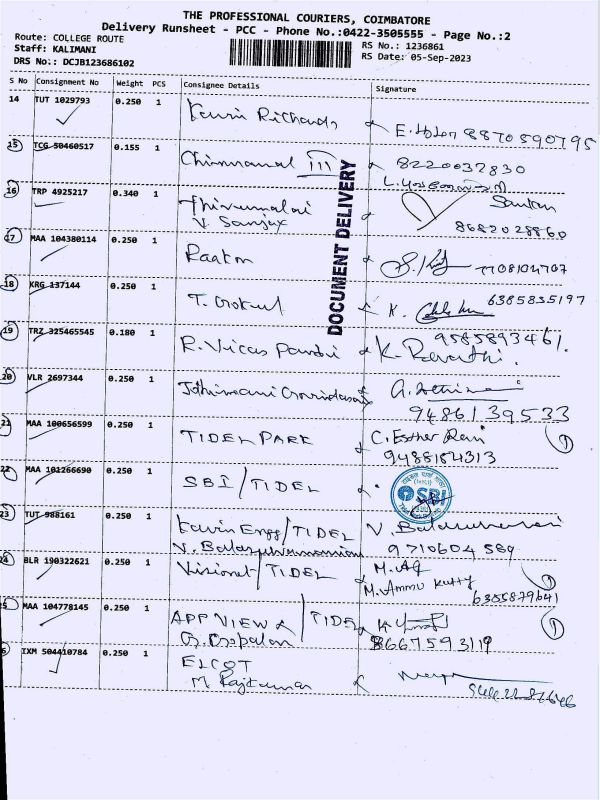 THE PROFESSIONAL COURIERS, COIMBATORE
Delivery Runsheet - PCC - Phone No.:0422-3505555 - Page No.:2
Route: COLLEGE ROUTE
Staff: KALIMANI
DRS No.: DCJB123686102
RS No.: 1236861
RS Date: 05-Sep-2023
S No Consignment No Weight PCS Consignee Details Signature
14 TUT 1029793 0.250 1 Kevin Richards 8870590795
15 TCG 50460517 0.155 1 Chinnamal III 8220037830
16 TRP 4925217 0.340 1 Thirumalai
V. Sanjay 8682028860
DOCUMENT DELIVERY
17 MAA 104380114 0.250 1
18 KRG 137144 0.250 1 T. Gokul K. 6385835197
19 TRZ 325465545 0.180 1 R. Vicas Pandi K. Revathi.
9585893461.
20 VLR 2697344 0.250 1 Jothimani Govindasamy
9486139533
21 MAA 100656599 0.250 1 TIDEL PARK C. Esther Rani
9488184313
22 MAA 101266690 0.250 1 SBI/TIDEL SBI
23 TUT 988161 0.250 1 Kavin Engg/TIDEL V. Balasubramanian
V. Balasubramanian 9710604589
24 BLR 190322621 0.250 1 Visionet/TIDEL
M. Ammu Kutty 6385879641
MAA 104778145 0.250 1 APP VIEW X/TIDEL
G. Gopalan 8667593119
IXM 504410784 0.250 1 ELCOT
M. Rajkumar